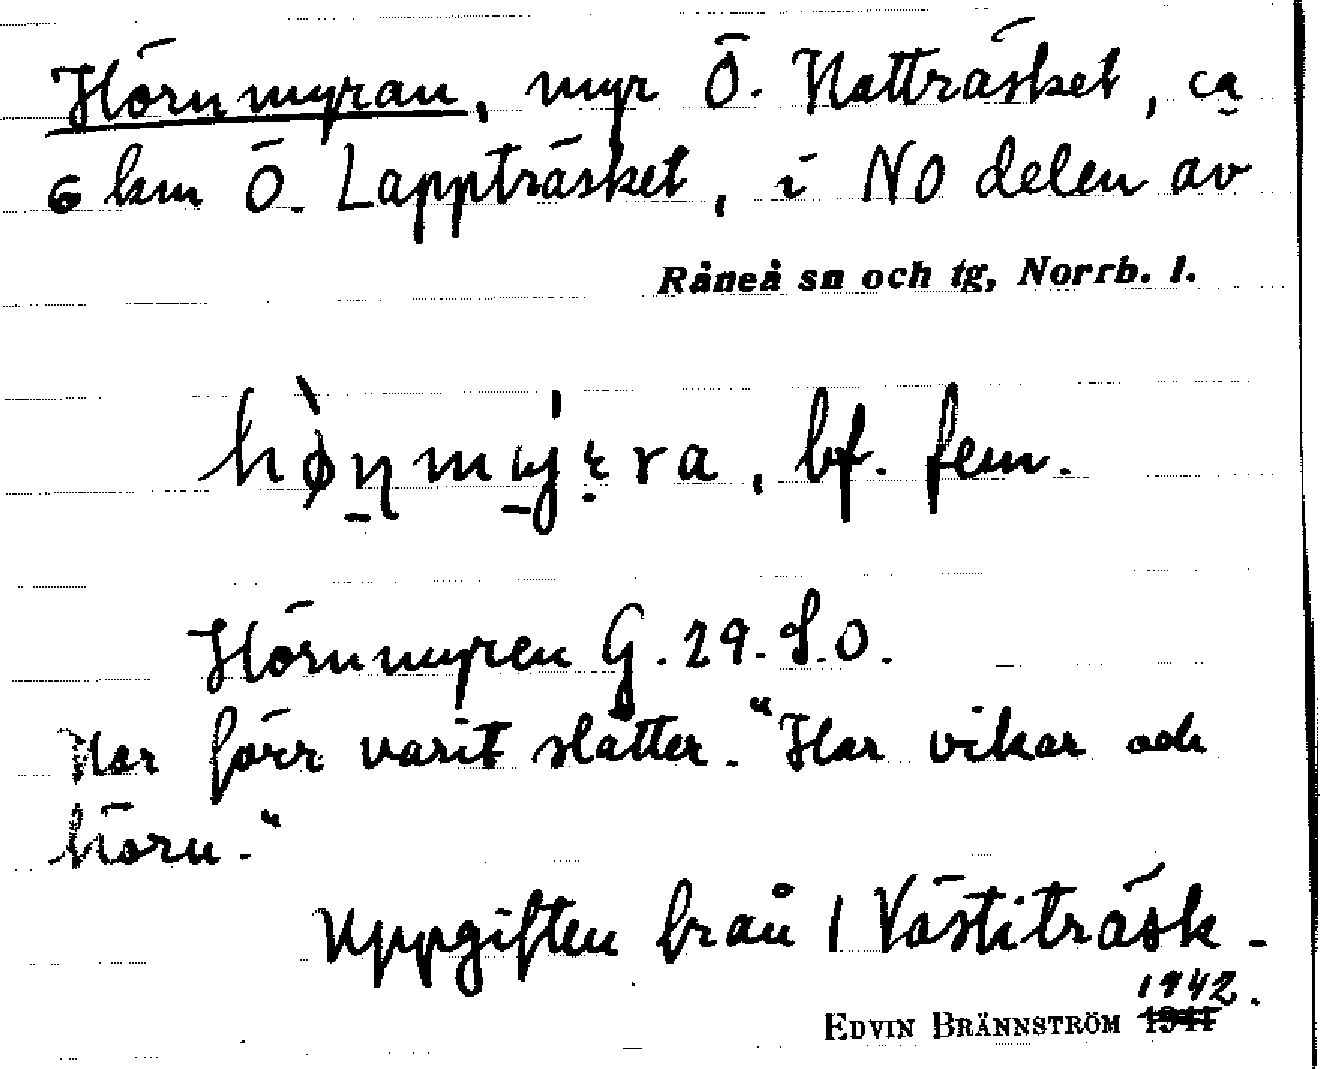 Hörnmyran, myr Ö. Natträsket, ca
6 km Ö. Lappträsket, i NO delen av
Råneå sn och tg, Norrb. l.
bf. fem.
Hörnmyren G. 29. S.O.
Har förr varit slåtter. "Har vikar och
hörn."
Uppgiften från 1 Västiträsk -
EDVIN BRÄNNSTRÖM 1941 1942.